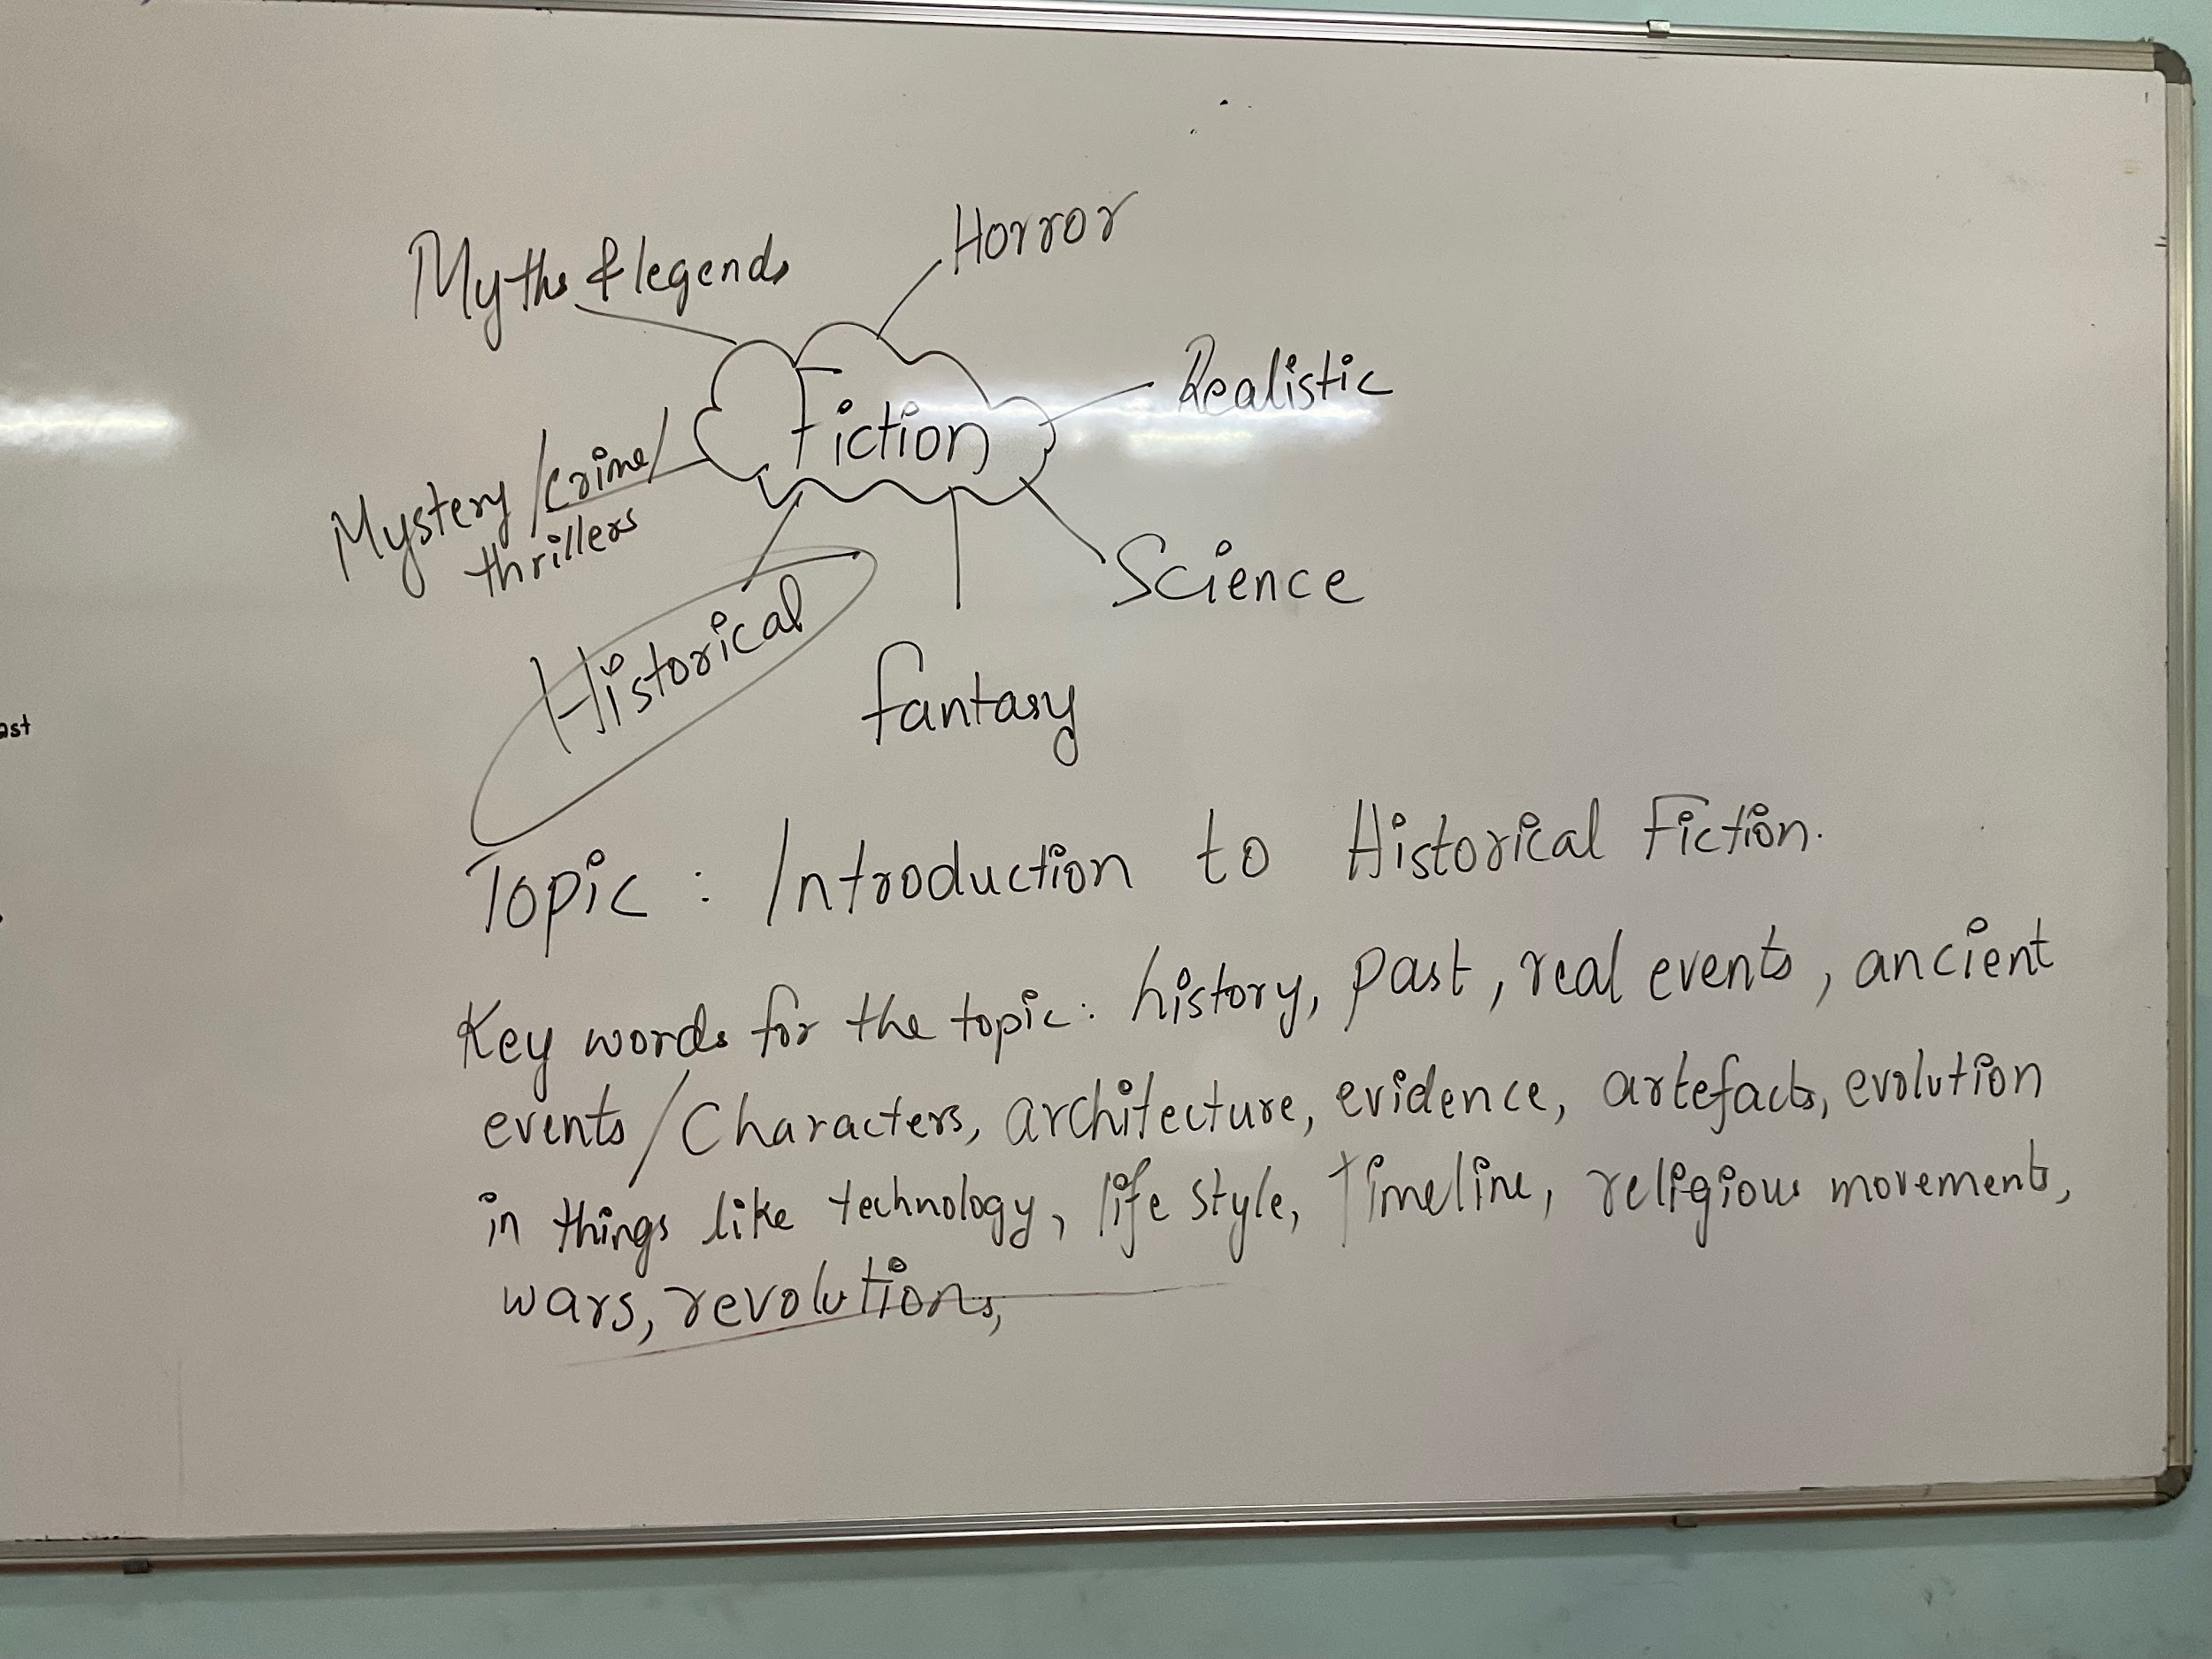 Horror
Myths & legends
Realistic
Fiction
Mystery/crime/
thrillers
Science
Historical
fantasy
ast
Topic : Introduction to Historical Fiction.
Key words for the topic: history, past, real events, ancient
events/Characters, architecture, evidence, artefacts, evolution
in things like technology, life style, timeline, religious movements,
wars, revolutions,